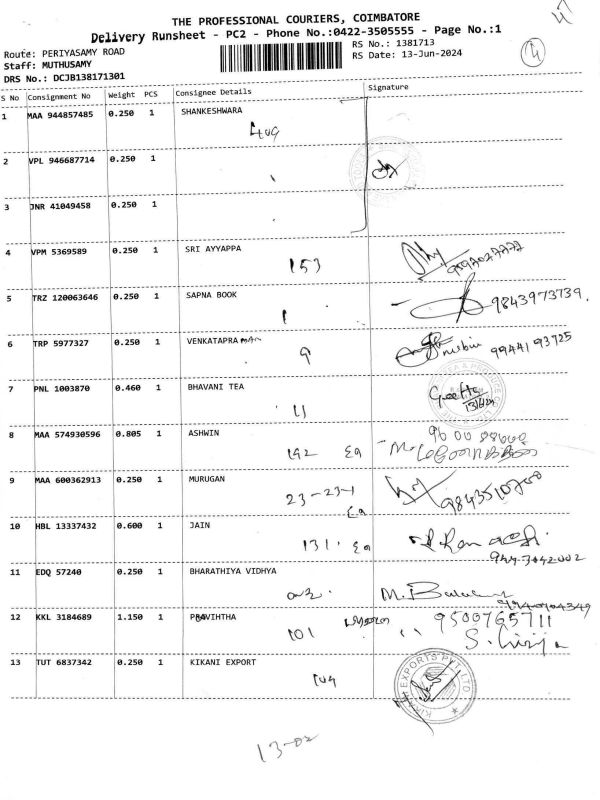 THE PROFESSIONAL COURIERS, COIMBATORE
Delivery Runsheet - PC2 - Phone No.:0422-3505555 - Page No.:1
Route: PERIYASAMY ROAD
RS No.: 1381713
Staff: MUTHUSAMY
RS Date: 13-Jun-2024
DRS No.: DCJB138171301
S No Consignment No Weight PCS Consignee Details Signature
1 MAA 944857485 0.250 1 SHANKESHWARA
409
2 VPL 946687714 0.250 1
3 JNR 41049458 0.250 1
4 VPM 5369589 0.250 1 SRI AYYAPPA
153
5 TRZ 120063646 0.250 1 SAPNA BOOK
1 9843973739.
6 TRP 5977327 0.250 1 VENKATAPRAMAN
9 99441 93725
7 PNL 1003870 0.460 1 BHAVANI TEA
11 Geetha
13/6/24
8 MAA 574930596 0.805 1 ASHWIN
192
9 MAA 600362913 0.250 1 MURUGAN
23-23-1 9843510700
10 HBL 13337432 0.600 1 JAIN
131.
11 EDQ 57240 0.250 1 BHARATHIYA VIDHYA
12 KKL 3184689 1.150 1 PRAVIHTHA
101 9500765711
S. Girija
13 TUT 6837342 0.250 1 KIKANI EXPORT
104
KIKANI EXPORTS PVT. LTD.
13-02